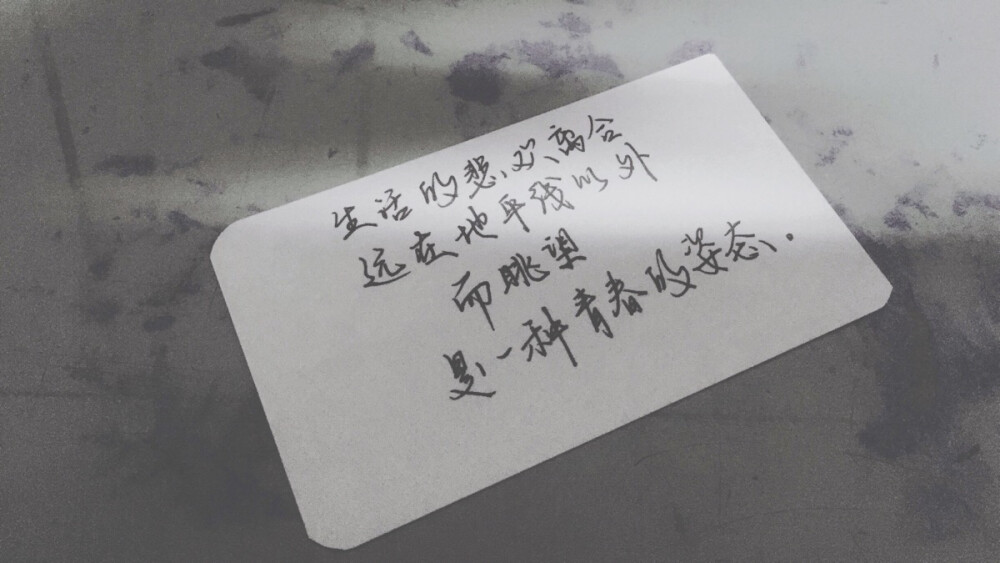 生活的悲必离合
远在地平线以外
而眺望
是一种青春的姿态.